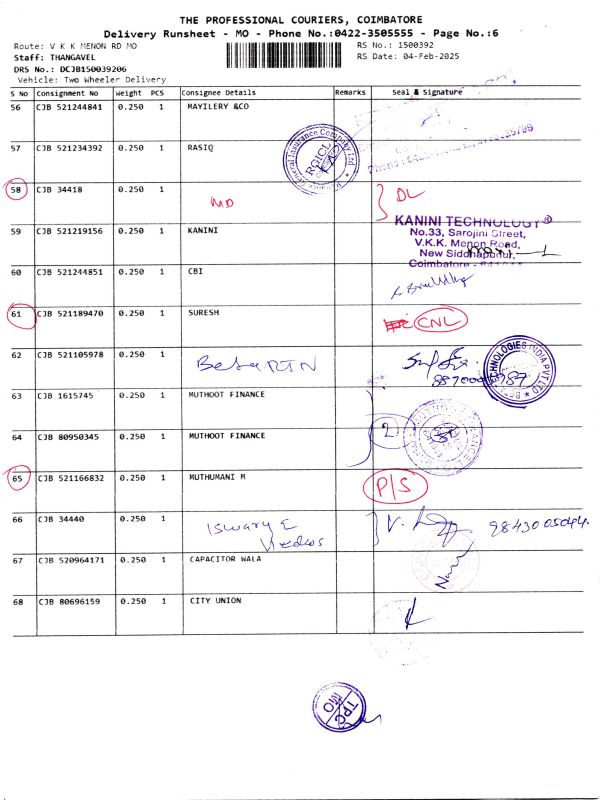 THE PROFESSIONAL COURIERS, COIMBATORE
Delivery Runsheet - MO - Phone No.:0422-3505555 - Page No.:6
Route: V K K MENON RD MO
RS No.: 1500392
Staff: THANGAVEL
RS Date: 04-Feb-2025
DRS No.: DCJB150039206
Vehicle: Two Wheeler Delivery
S No Consignment No Weight PCS Consignee Details Remarks Seal & Signature
56 CJB 521244841 0.250 1 MAYILERY &CO
57 CJB 521234392 0.250 1 RASIQ
General Insurance Company Ltd
RGICL
58 CJB 34418 0.250 1 MD DL
59 CJB 521219156 0.250 1 KANINI
KANINI TECHNOLOGY ®
No.33, Sarojini Street,
V.K.K. Menon Road,
New Siddhapudur,
Coimbatore
60 CJB 521244851 0.250 1 CBI
61 CJB 521189470 0.250 1 SURESH CNL
62 CJB 521105978 0.250 1
TECHNOLOGIES INDIA PVT LTD
63 CJB 1615745 0.250 1 MUTHOOT FINANCE
64 CJB 80950345 0.250 1 MUTHOOT FINANCE 2
65 CJB 521166832 0.250 1 MUTHUMANI M P/S
66 CJB 34440 0.250 1 Iswary E 9843005044.
67 CJB 520964171 0.250 1 CAPACITOR WALA
68 CJB 80696159 0.250 1 CITY UNION
TPC
MO